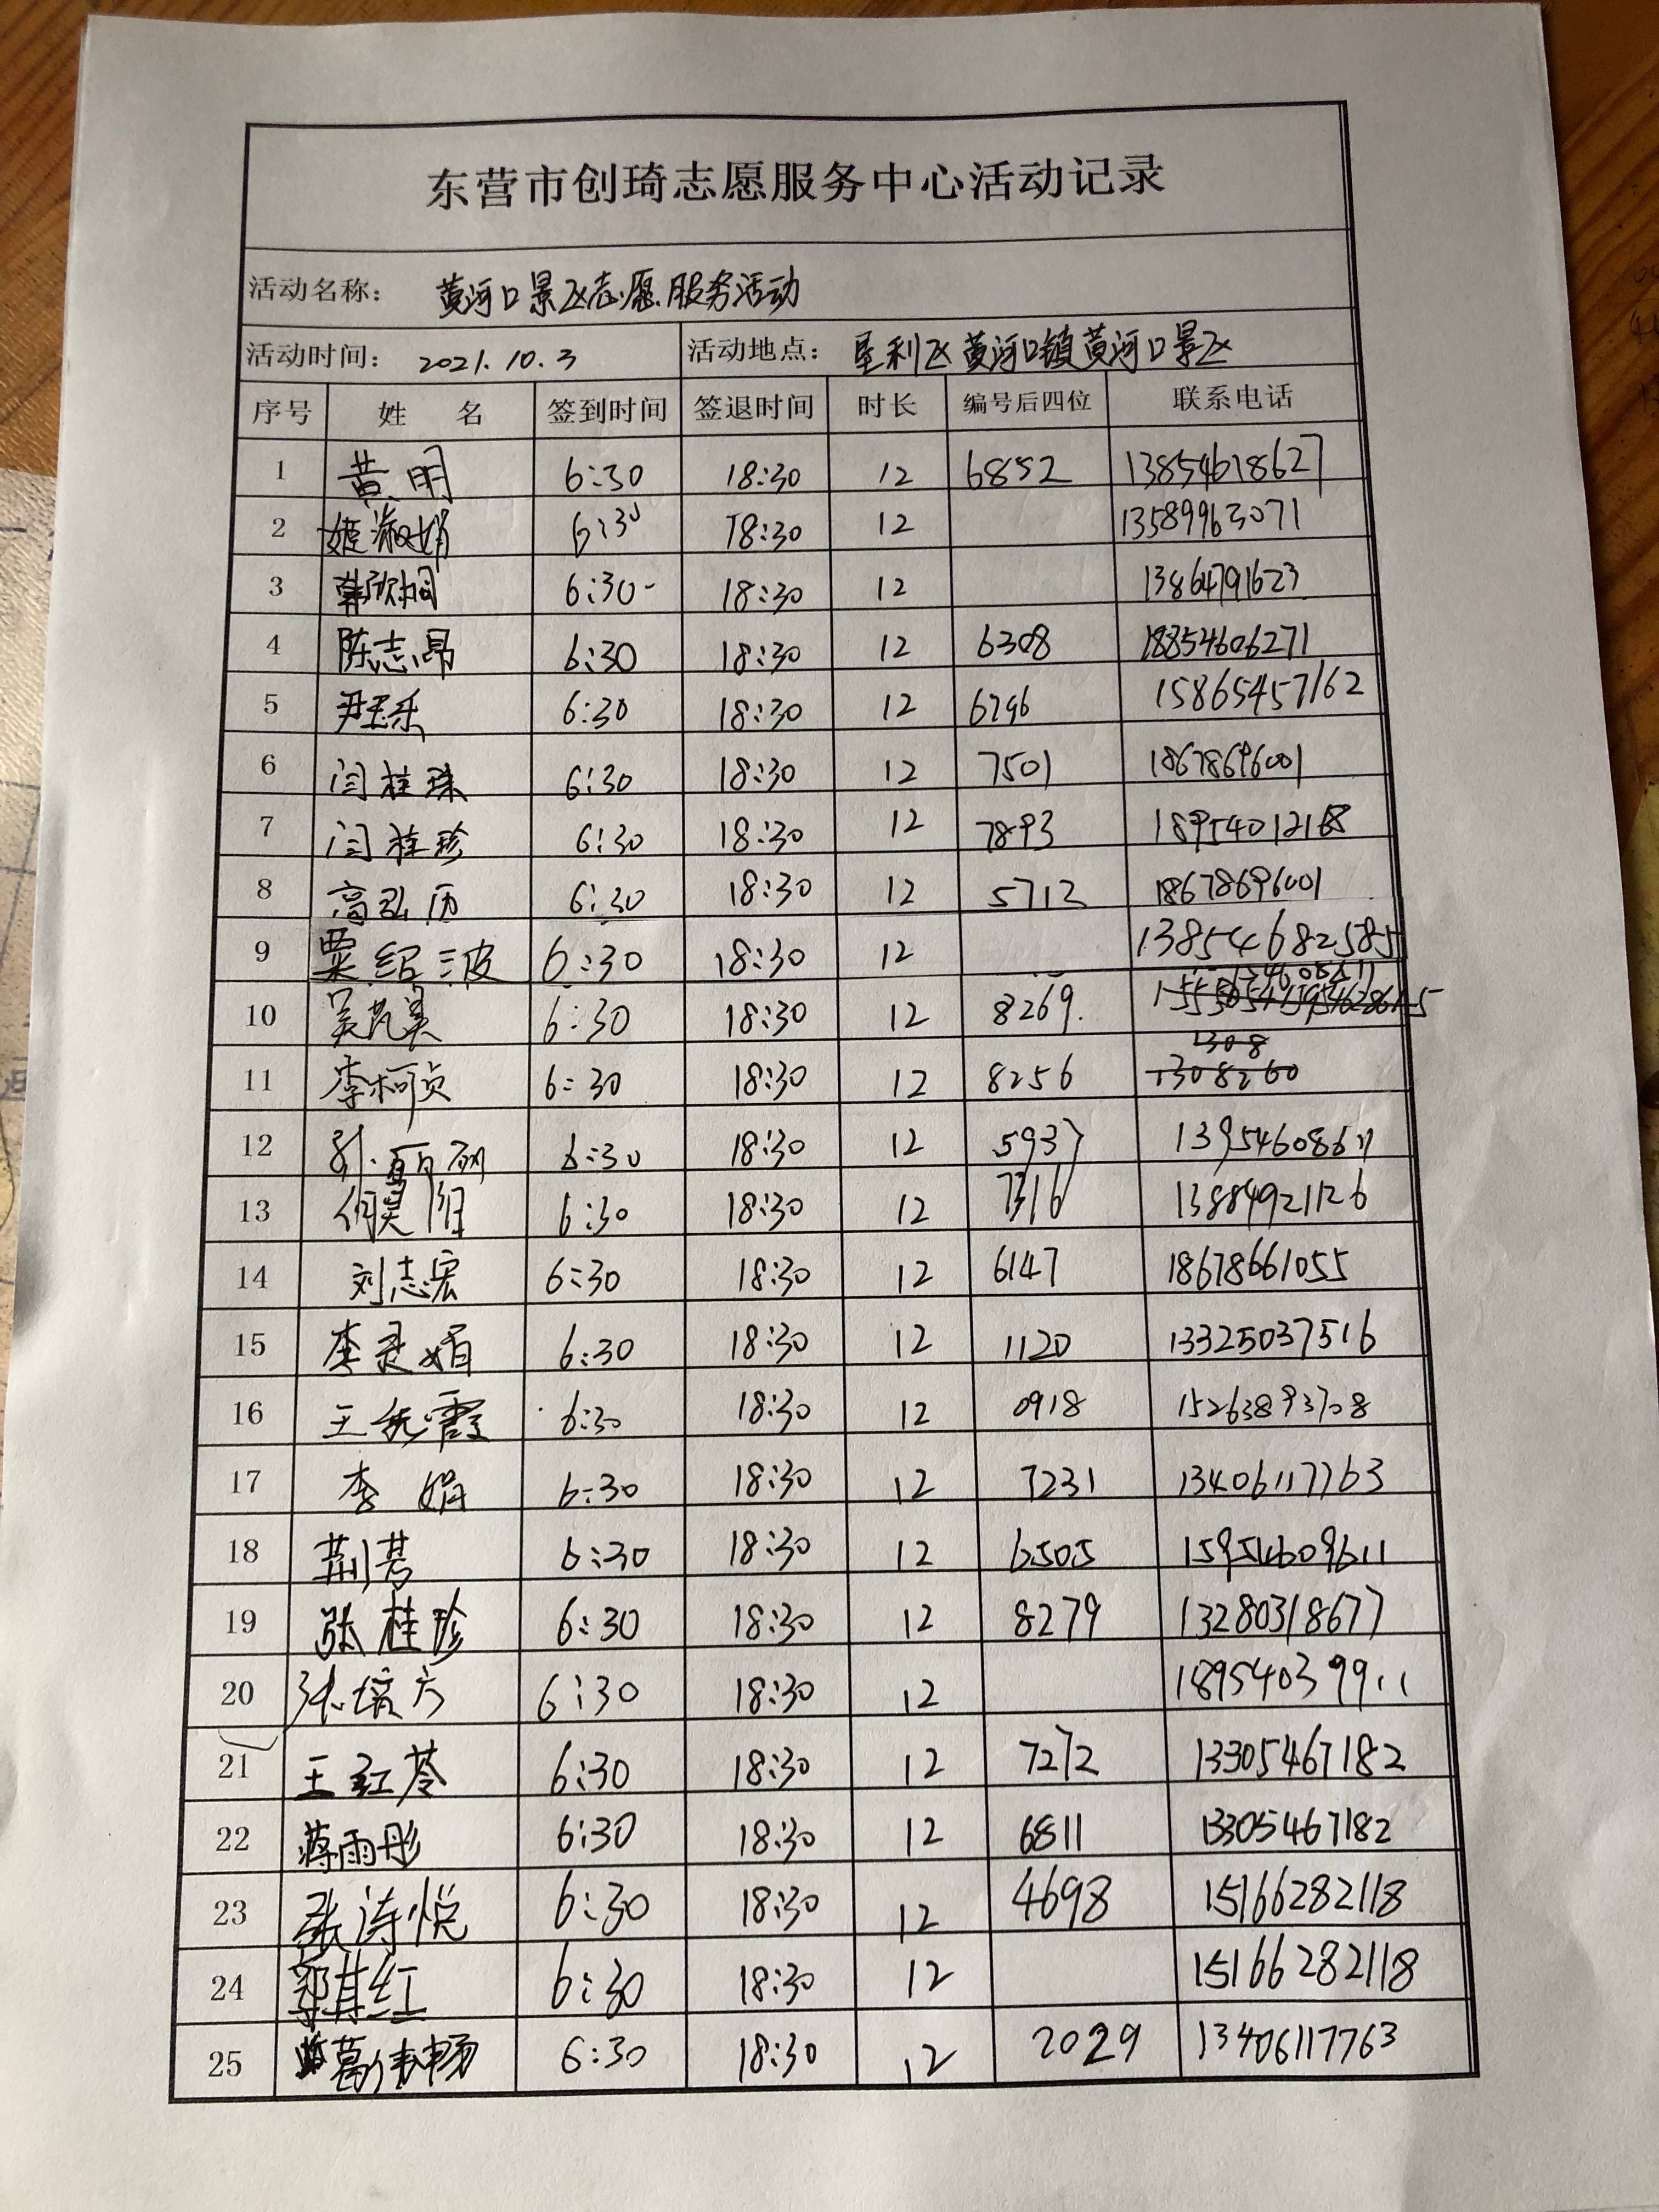 东营市创琦志愿服务中心活动记录
活动名称： 黄河口景区志愿服务活动
活动时间： 2021.10.3 活动地点： 垦利区黄河口镇黄河口景区
序号 姓 名 签到时间 签退时间 时长 编号后四位 联系电话
1 黄明 6:30 18:30 12 6852 13854618627
2 姬淑娟 6:30 18:30 12 13589963071
3 韩欣桐 6:30 18:30 12 13864791623
4 陈志昂 6:30 18:30 12 6308 18854606271
5 尹玉乐 6:30 18:30 12 6296 15865457162
6 闫桂珠 6:30 18:30 12 7501 18678696001
7 闫桂珍 6:30 18:30 12 7893 18954012168
8 高弘历 6:30 18:30 12 5712 18678696001
9 粟绍波 6:30 18:30 12 13854682585
10 6:30 18:30 12 8269
11 李柯贞 6:30 18:30 12 8256 1308260
12 6:30 18:30 12 5937 13954608611
13 6:30 18:30 12 7316 13884921126
14 刘志宏 6:30 18:30 12 6147 18678661055
15 李灵娟 6:30 18:30 12 1120 13325037516
16 6:30 18:30 12 0918 15263893708
17 李娟 6:30 18:30 12 7231 13406117763
18 荆芳 6:30 18:30 12 6505 15954609611
19 张桂珍 6:30 18:30 12 8279 13280318677
20 6:30 18:30 12 18954039911
21 王红苓 6:30 18:30 12 7272 13305467182
22 蒋雨彤 6:30 18:30 12 6811 13305467182
23 张涛悦 6:30 18:30 12 4698 15166282118
24 郭其红 6:30 18:30 12 15166282118
25 6:30 18:30 12 2029 13406117763